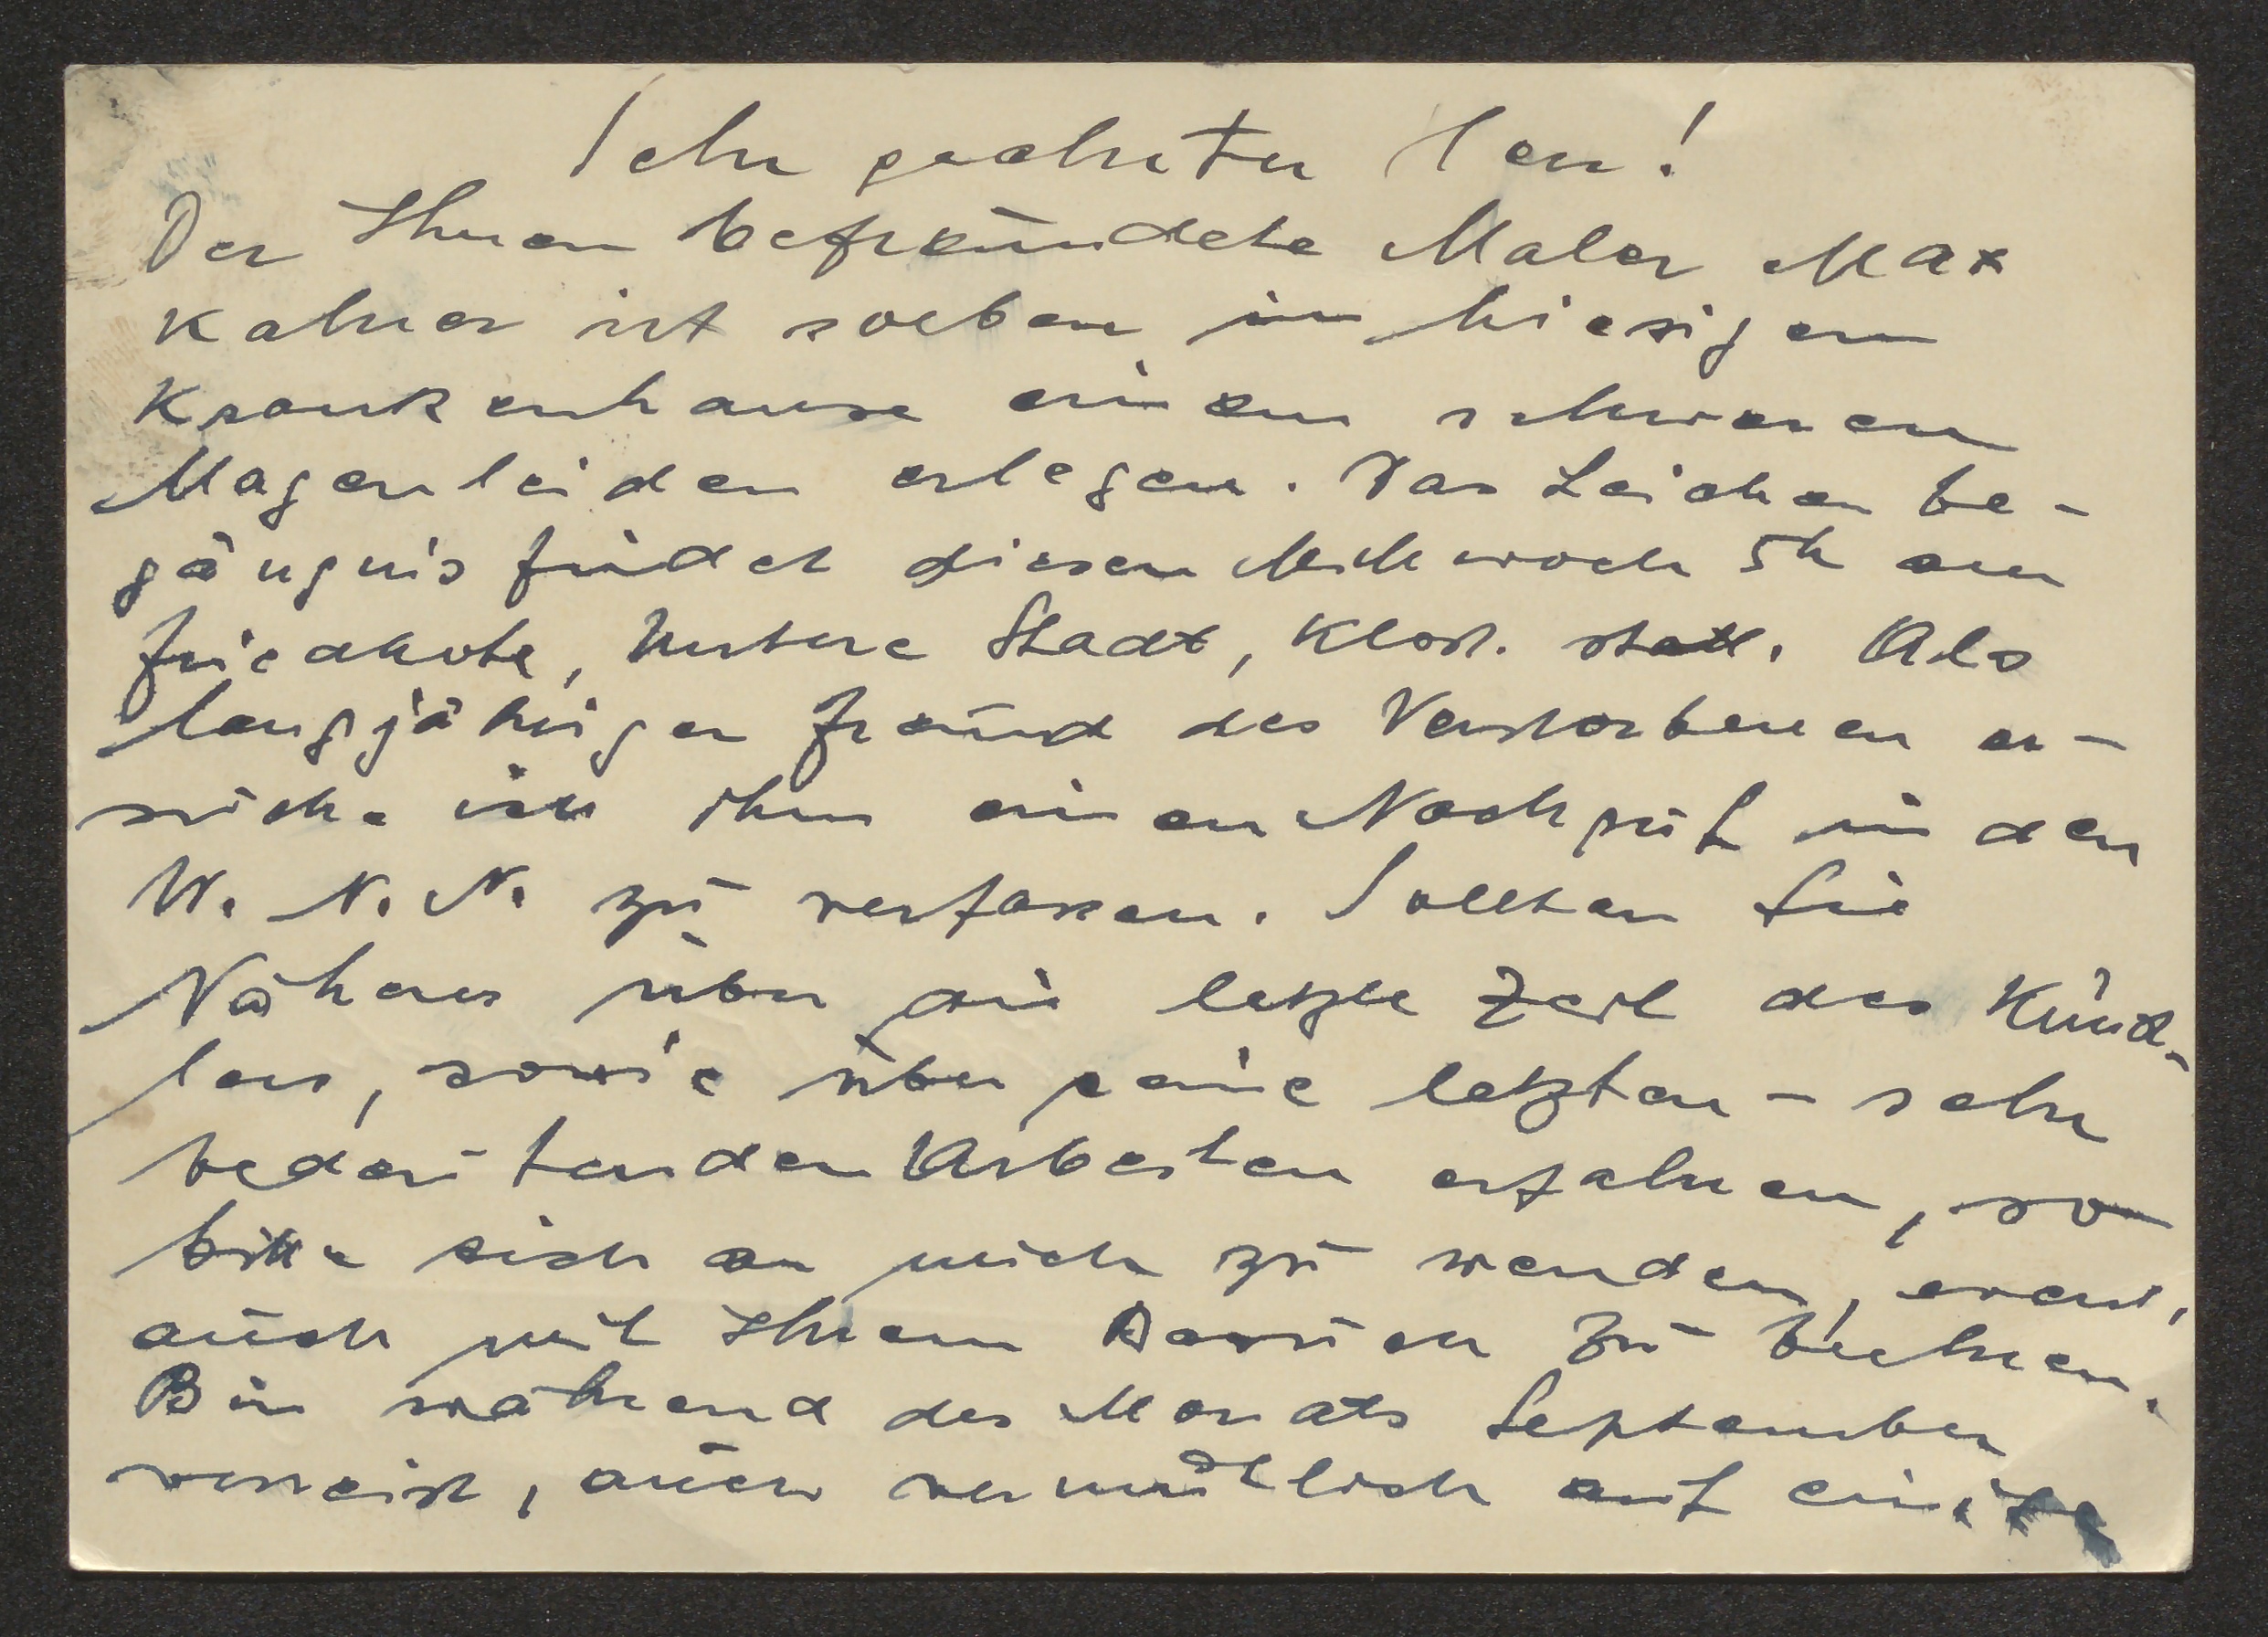 Sehr geehrter Herr!
Der Ihnen befreundete Maler Max
Kahrer ist soeben im hiesigen
Krankenhause einem schweren
Magenleiden erlegen. Das Leichenbe-
gängnis findet diesen Mittwoch 5h am
Friedhofe, Untere Stadt, Klost. statt. Als
langjähriger Freund des Verstorbenen er-
suche ich ihm einen Nachruf in den
W. N. N. zu verfassen. Sollten Sie
Näheres über die letzte Zeit des Künst-
lers, sowie über seine letzten - sehr
bedeutenden Arbeiten erfahren, so
bitte sich an mich zu wenden, event.
auch mit Ihrem Besuch zu beehren.
Bin während des Monats September
verreist, auch vermutlich auf